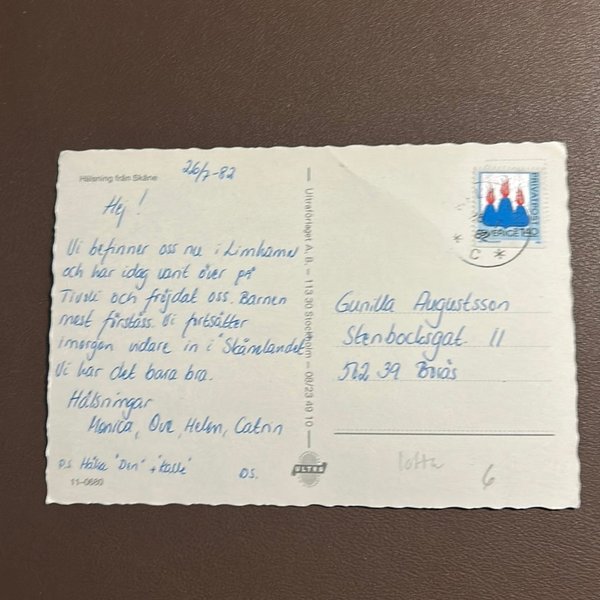 Hälsning från Skåne
26/7-82
Hej!
Vi befinner oss nu i Limhamn
och har idag varit över på
Tivoli och fröjdat oss. Barnen
mest förståss. Vi fortsätter
imorgon vidare in i "Skånelandet"
Vi har det bara bra.
Hälsningar
Monica, Ove, Helen, Catrin
P.S Hälsa "Den" + "Kalle" DS.
11-0680
Ultraförlaget A.B. – 113 30 Stockholm – 08/23 49 10
ULTRA
PRIVATPOST
SVERIGE 140
* C *
Gunilla Augustsson
Stenbocksgat. 11
502 39 Borås
lotta
6